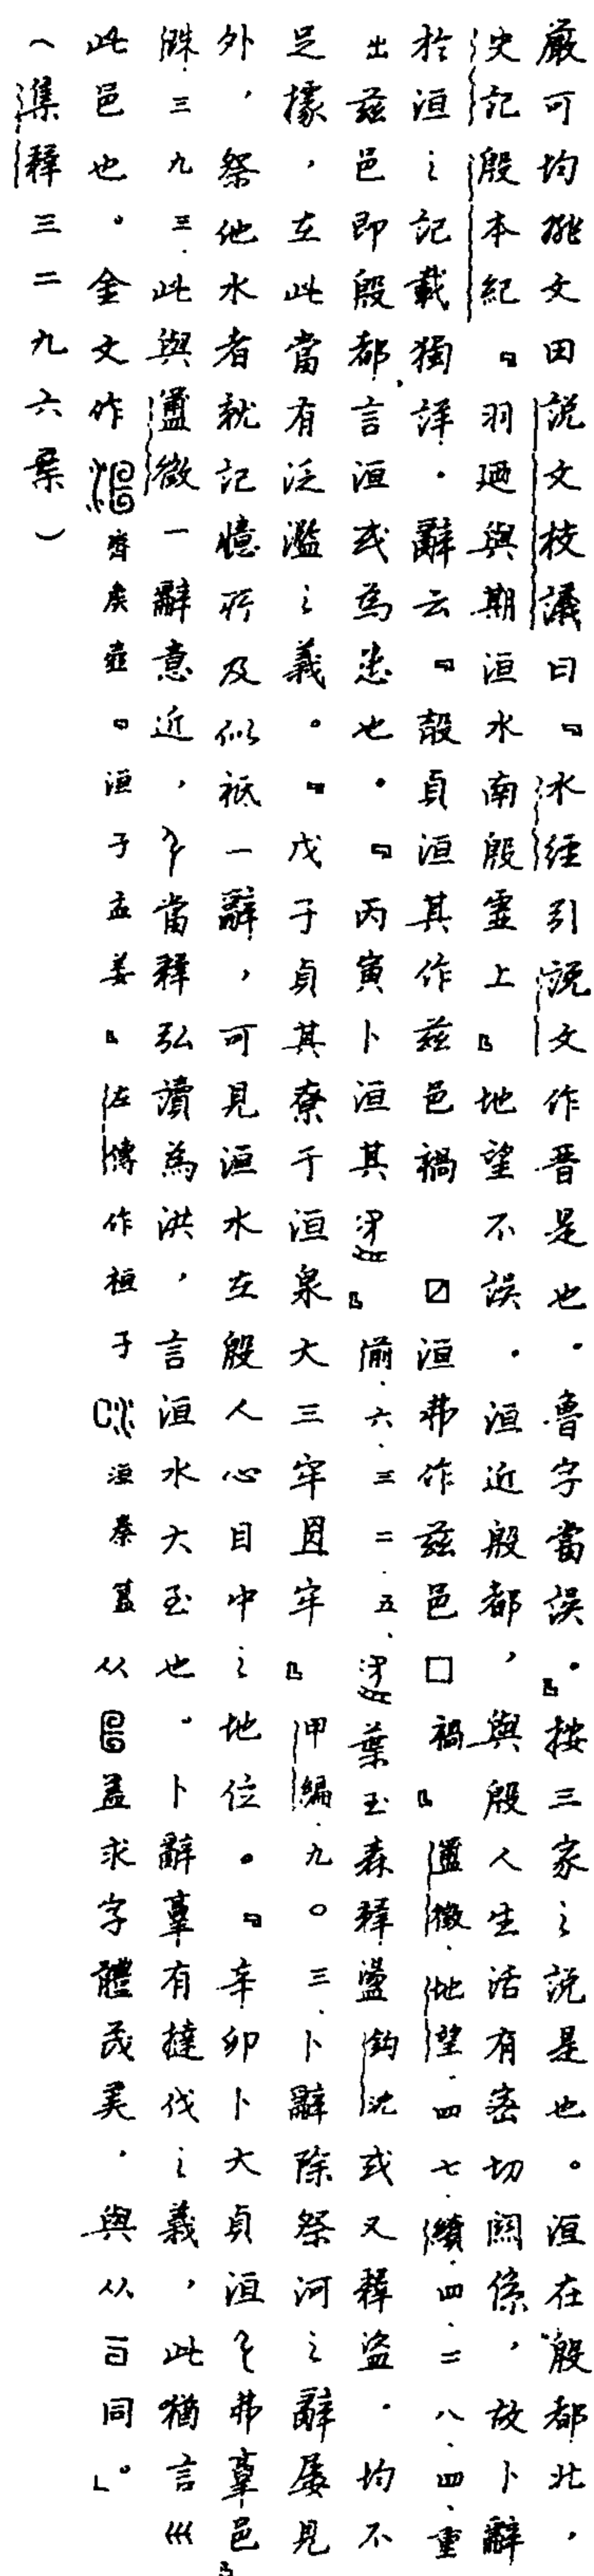 嚴可均姚文田說文校議曰『水經引說文作晉是也．魯字當誤．』按三家之說是也。洹在殷都北，
史記殷本紀『羽廼與期洹水南殷虛上』地望不誤．洹近殷都，與殷人生活有密切關係，故卜辭
於洹之記載獨詳．辭云『㱿貞洹其作茲邑禍 洹弗作茲邑□禍』簠徵．地望．四七．續．四．二八．四．重
出茲邑即殷都，言洹或為患也．『丙寅卜洹其』前．六．三二．五．葉玉森釋盪鈎沈或又釋盜．均不
足據，在此當有泛濫之義。『戊子貞其尞于洹泉大三牢宜牢』甲編．九〇三．卜辭除祭河之辭屢見
外，祭他水者就記憶所及似祇一辭，可見洹水在殷人心目中之地位。『辛卯卜大貞洹弗𦎫邑』
殊．三九三．此與簠徵一辭意近，當釋弘讀為洪，言洹水大至也。卜辭𦎫有撻伐之義，此猶言巛
此邑也。金文作齊侯壺『洹子孟姜』左傳作桓子洹秦簋从蓋求字體茂美．與从同。」
（集釋三二九六葉）